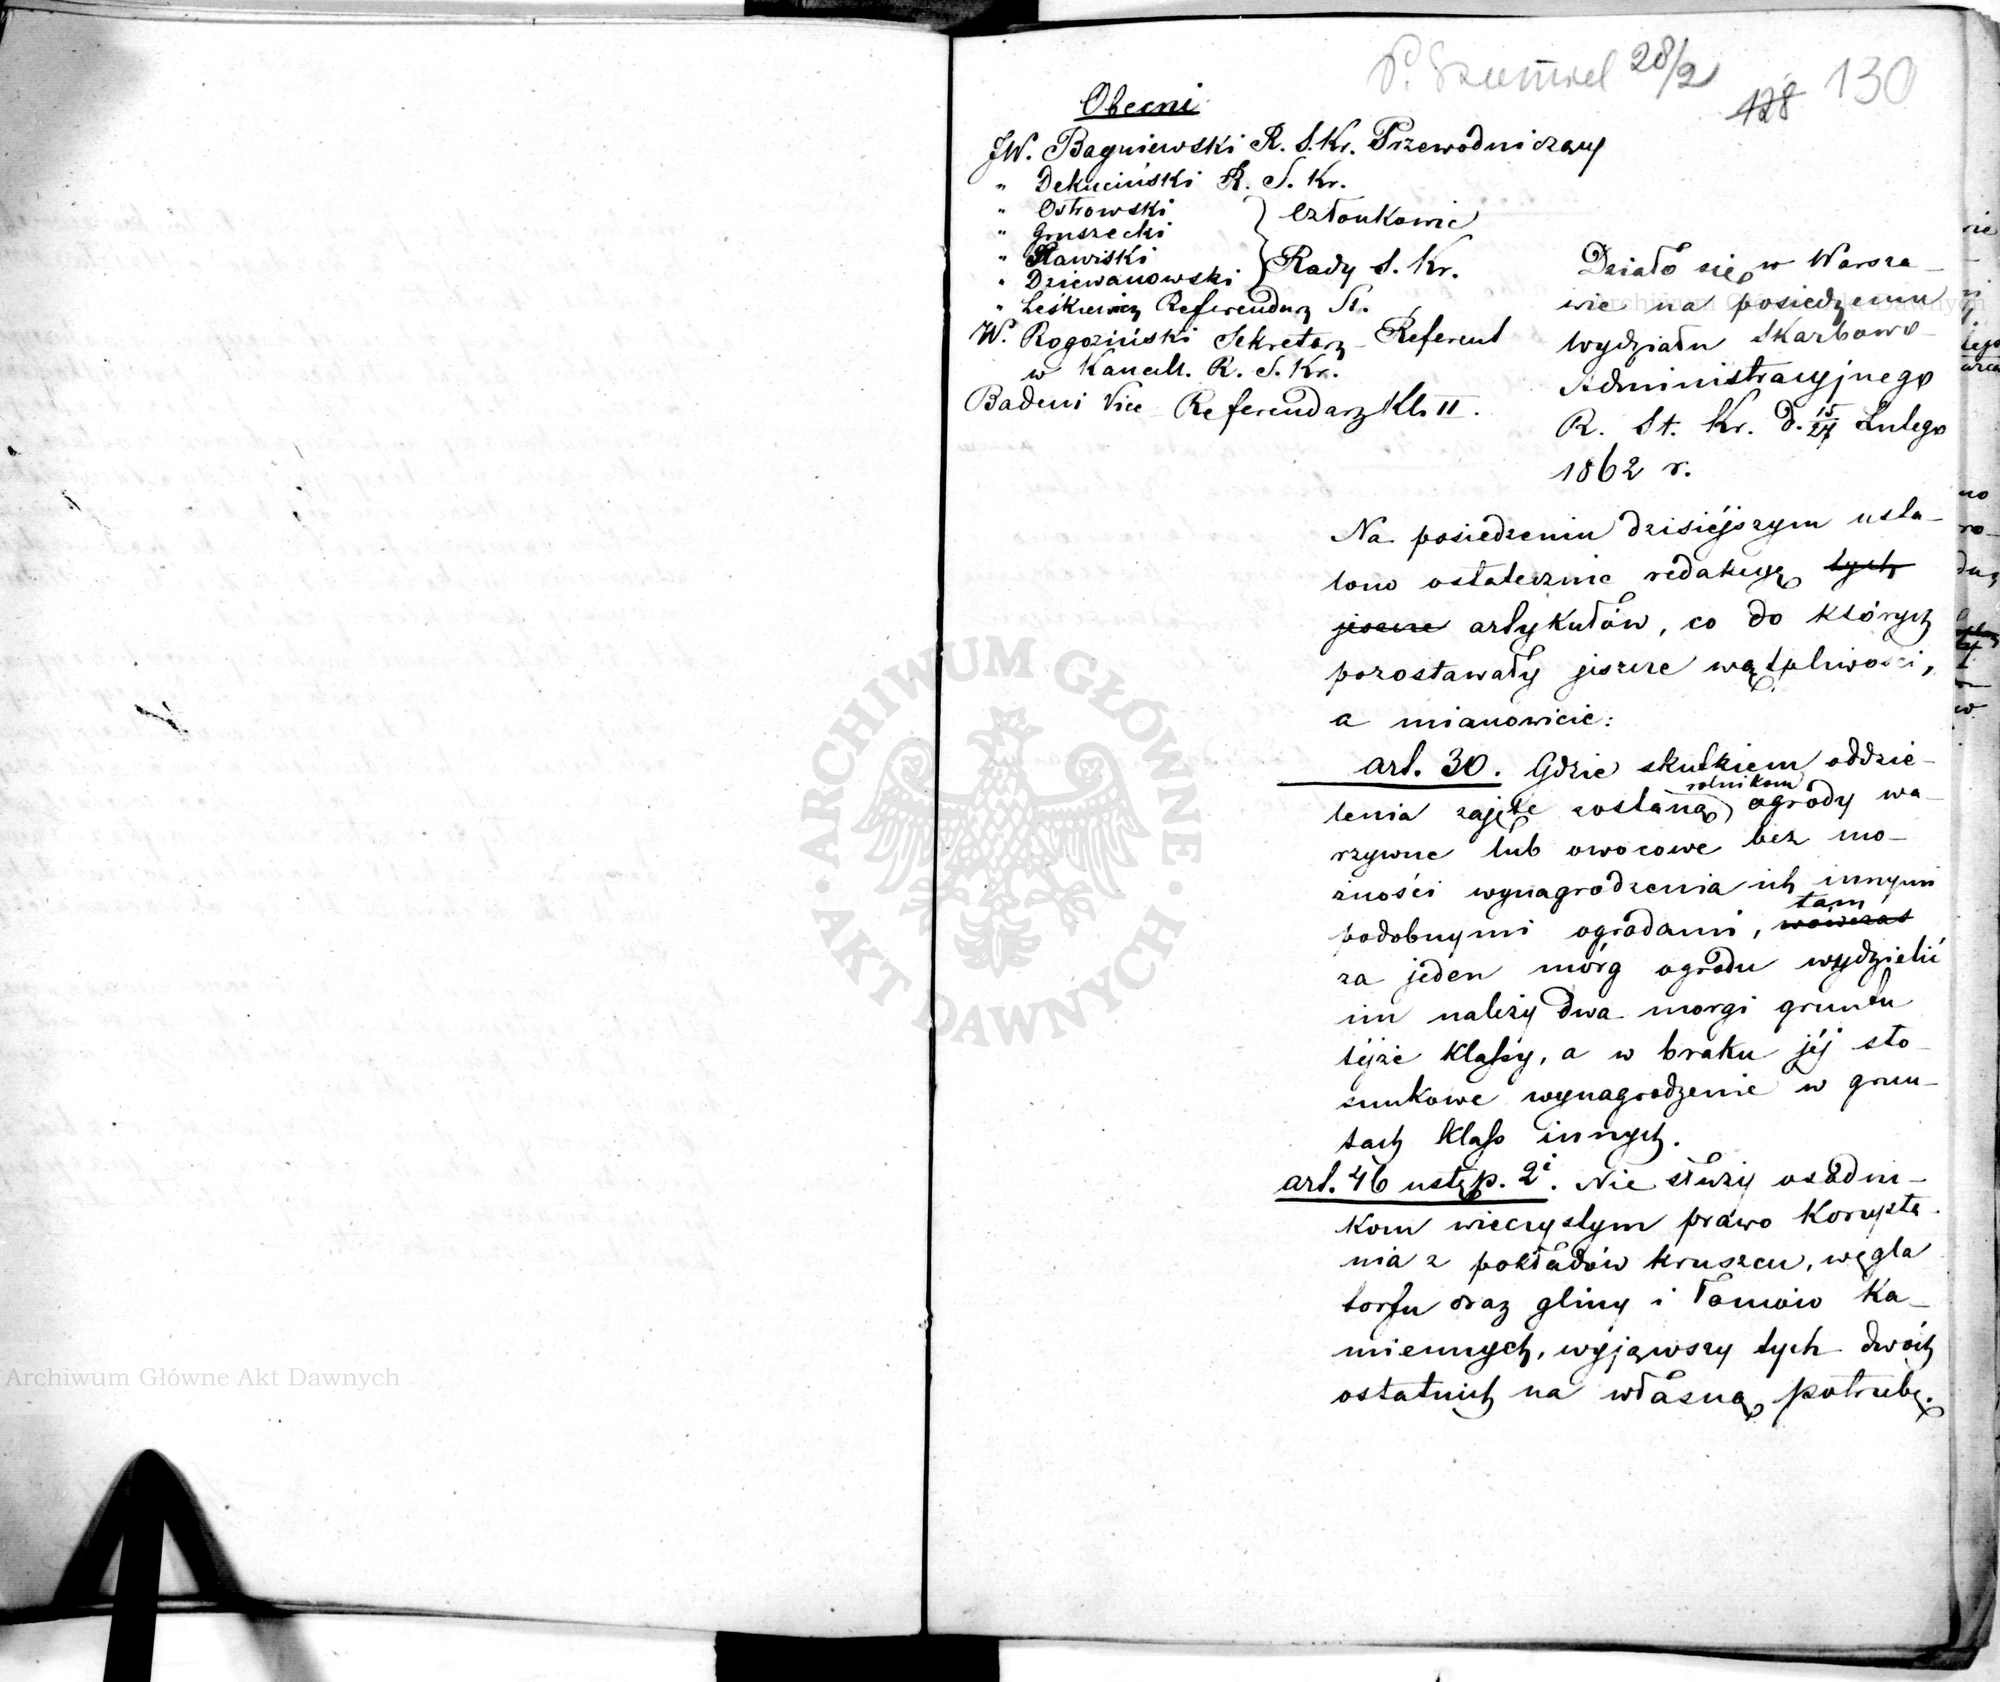 28/2
128 130
Obecni
JW. Bagniewski R. S. Kr. Przewodniczący
" Dekuciński R. S. Kr.
" Ostrowski } Członkowie
" Gruszecki
" Sławiski } Rady S. Kr.
" Dziewanowski
" Leśkiewicz Referendarz St.
W. Rogoziński Sekretarz Referent
w Kancell. R. S. Kr.
Badeni Vice Referendarz Kl. II.
Działo się w Warsza-
wie na posiedzeniu
Wydziału Skarbowo-
Administracyjnego
R. St. Kr. d. 15/27 Lutego
1862 r.
Na posiedzeniu dzisiéjszym usta-
lono ostatecznie redakcyę tych
jeszcze artykułów, co do których
pozostawały jeszcze wątpliwości,
a mianowicie:
art. 30. Gdzie skutkiem oddzie-
lenia zajęte zostaną rolnikom ogrody wa-
rzywne lub owocowe bez mo-
żności wynagrodzenia ich innymi
podobnymi ogrodami, wówczas tam
za jeden mórg ogrodu wydzielić
im należy dwa morgi gruntu
téjże klassy, a w braku jéj sto-
sunkowe wynagrodzenie w grun-
tach klass innych.
art. 46 ustęp. 2i. Nie służy osadni-
kom wieczystym prawo korzysta-
nia z pokładów kruszcu, węgla
torfu oraz gliny i łomów ka-
miennych, wyjąwszy tych dwóch
ostatnich na własną potrzebę.
ARCHIWUM GŁÓWNE
AKT DAWNYCH
Archiwum Główne Akt Dawnych
Archiwum Główne Akt Dawnych